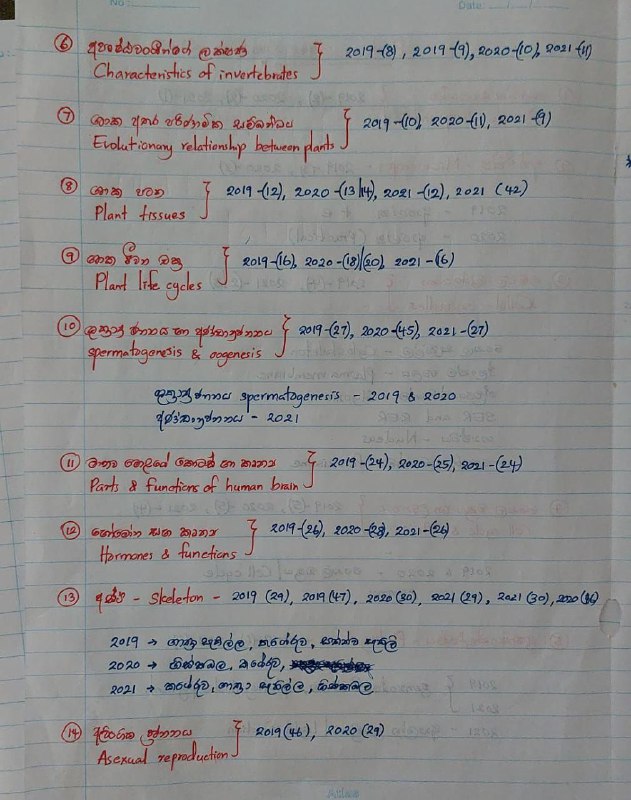 No:
Date:
⑥ අපෘෂ්ඨවංශීන්ගේ ලක්ෂණ } 2019-(8), 2019-(9), 2020-(10), 2021-(11)
Characteristics of invertebrates
⑦ ශාක අතර පරිණාමික සම්බන්ධය } 2019-(10), 2020-(11), 2021-(9)
Evolutionary relationship between plants
⑧ ශාක පටක } 2019-(12), 2020-(13/14), 2021-(12), 2021 (42)
Plant tissues
⑨ ශාක ජීවන චක්‍ර } 2019-(16), 2020-(18)/(20), 2021-(16)
Plant life cycles
⑩ ශුක්‍රාණු ජනනය හා අණ්ඩානුජනනය } 2019-(27), 2020-(45), 2021-(27)
spermatogenesis & oogenesis
ශුක්‍රාණුජනනය spermatogenesis - 2019 & 2020
අණ්ඩානුජනනය - 2021
⑪ මානව මොළයේ කොටස් හා කෘත්‍ය } 2019-(24), 2020-(25), 2021-(24)
Parts & functions of human brain
⑫ හෝමෝන සහ කෘත්‍ය } 2019-(26), 2020-(28), 2021-(26)
Hormones & functions
⑬ අස්ථි - Skeleton - 2019 (29), 2019 (47), 2020 (30), 2021 (29), 2021 (30), 2020 (36)
2019 → ගාත්‍රා සැකිල්ල, කශේරුව,
2020 → හිස්කබල, කශේරුව,
2021 → කශේරුව, ගාත්‍රා සැකිල්ල, හිස්කබල
⑭ අලිංගික ප්‍රජනනය } 2019 (46), 2020 (29)
Asexual reproduction
Atlas